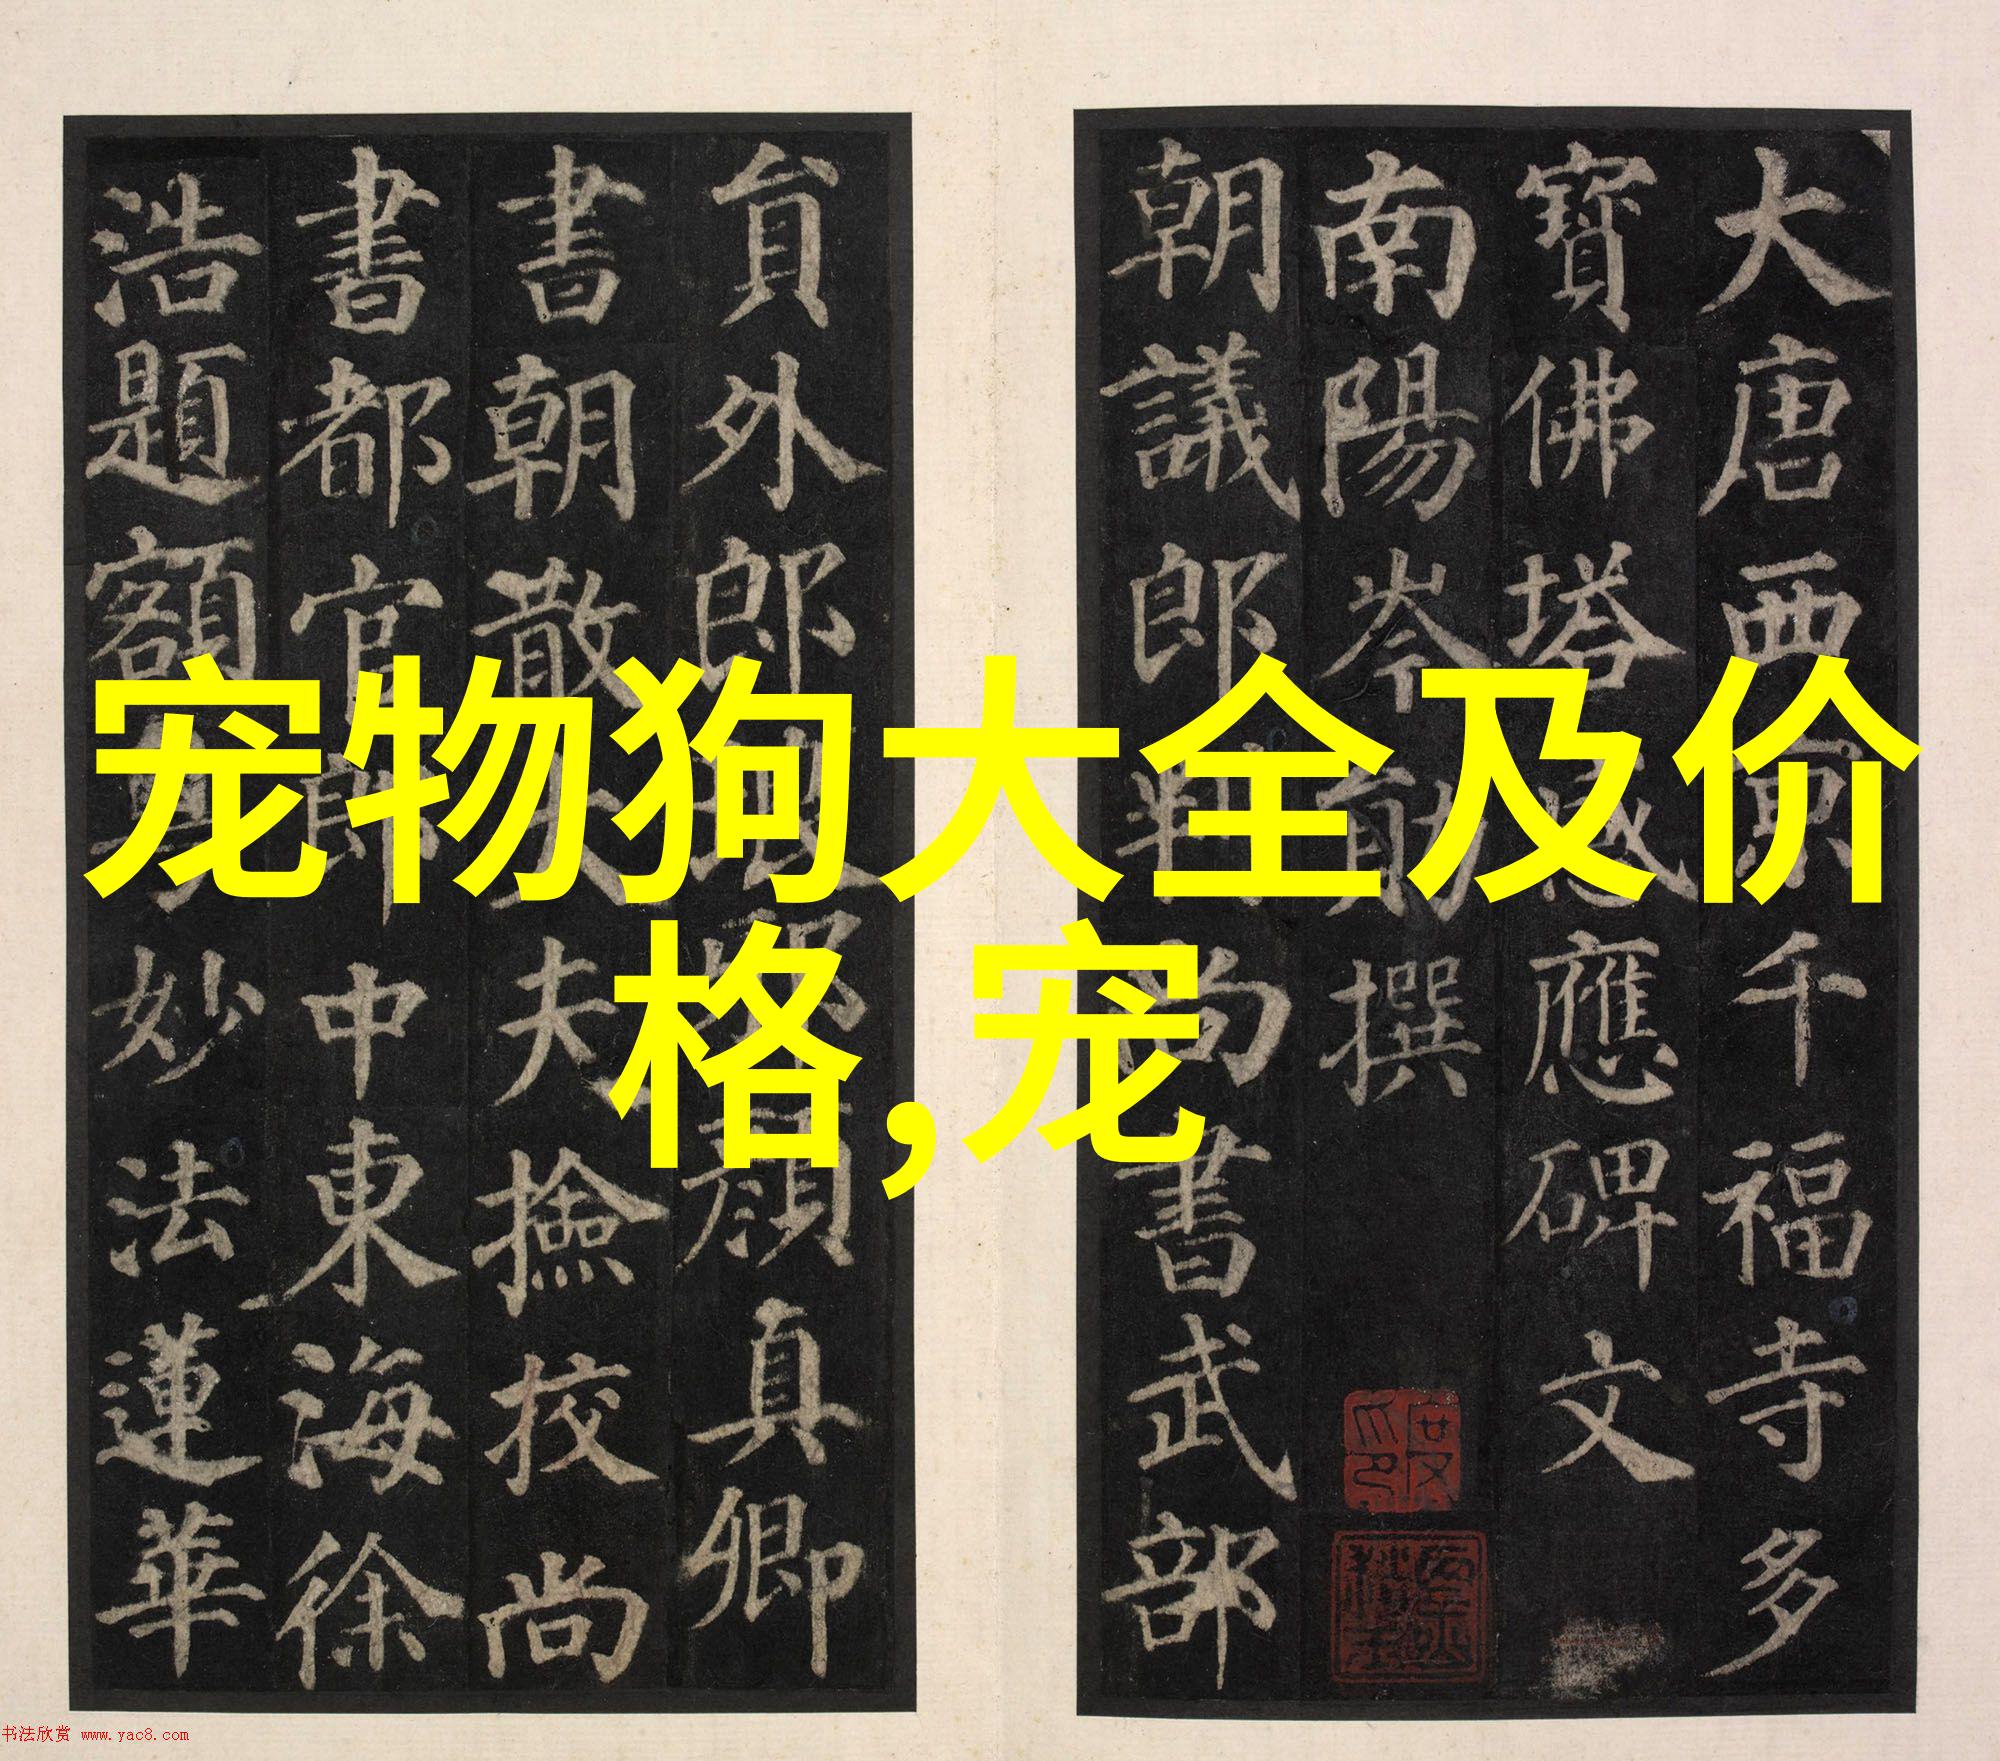 大唐西京千福寺多
寶佛塔感應碑文
南陽岑勛撰
朝議郎判尚書武部
員外郎琅邪顏真卿
書朝散大夫撿挍尚
書都官郎中東海徐
浩題額
妙法蓮華
宠物狗大全及价
格,宠
书法欣赏 www.yac8.com